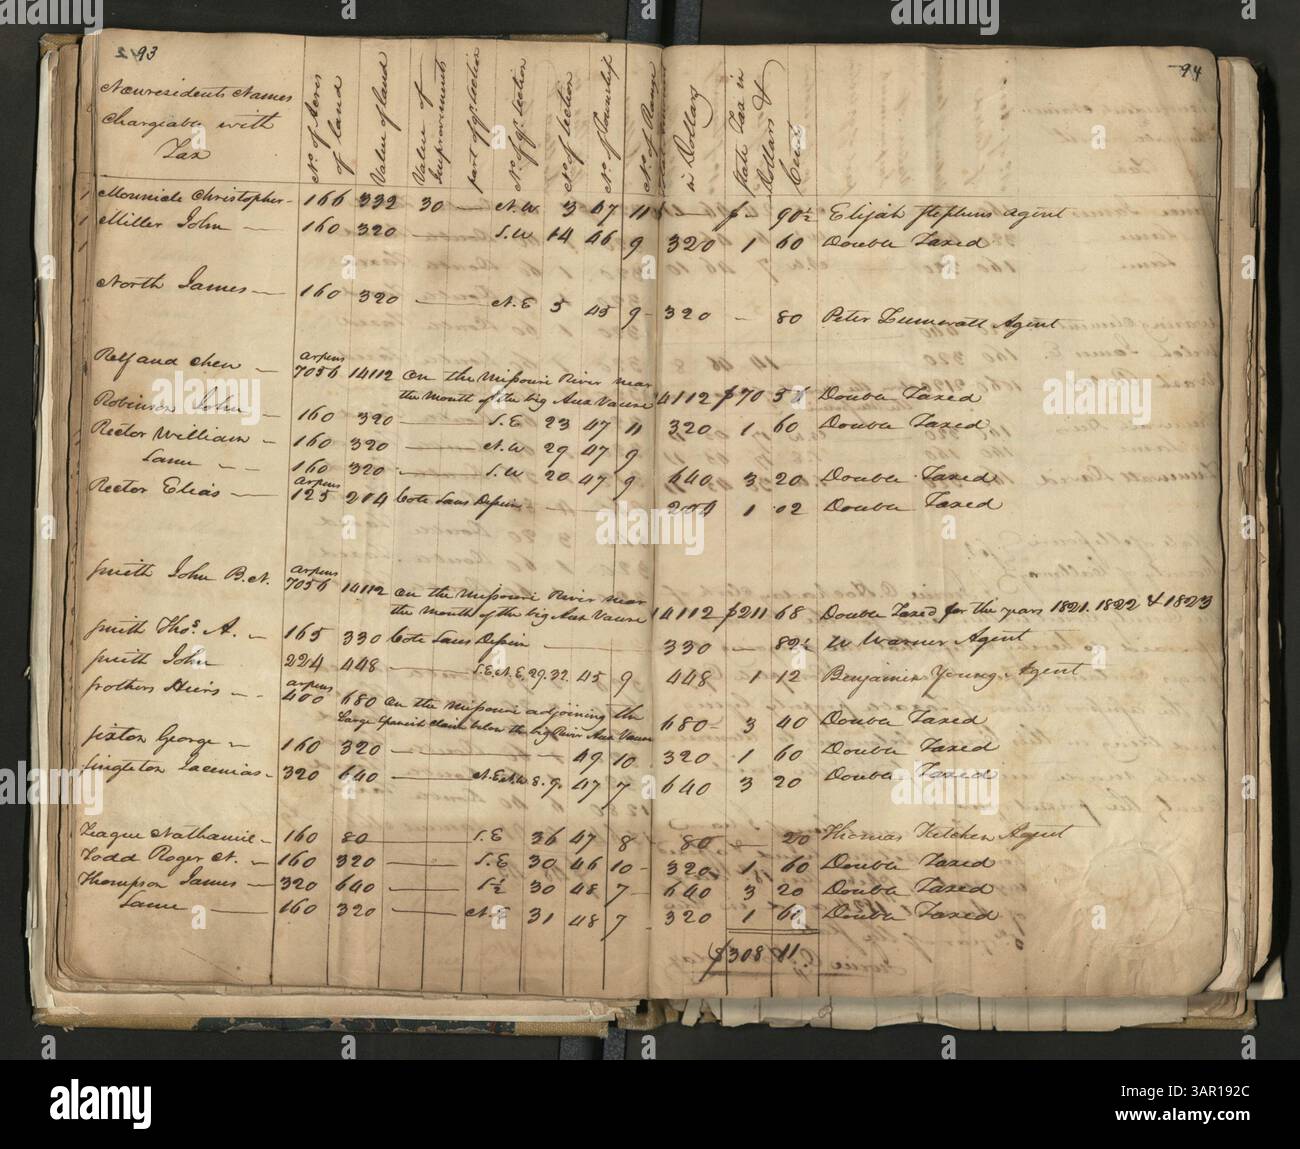 93
94
Nonresidents Names
Chargeable with
Tax
No. of Acres of land
Value of land
Value of Improvements
part of qr section
No. of qr section
No. of section
No. of Township
No. of Range
in Dollars
State Tax in Dollars & Cents
1 Christopher - 166 332 30 — N.W 3 47 11 — 90½ Elijah Stephens Agent
1 Miller John — 160 320 — S.W 14 46 9 320 1 60 Double Taxed
1
North James — 160 320 — N.E 5 45 9 - 320 — 80 Peter Agent
Relf and Chew — arpens 7056 14112 On the Missouri River near
the Mouth of the big Aux Vause 14112 $70 Double Taxed
Robinson John — 160 320 — S.E 23 47 11 320 1 60 Double Taxed
Rector William — 160 320 — N.W 29 47 9
Same — — 160 320 — S.W 20 47 9 640 3 20 Double Taxed
Rector Elias — arpens 125 204 Cote Sans Dessein — 204 1 02 Double Taxed
Smith John B. N. arpens 7056 14112 On the Missouri River near
the Mouth of the big Aux Vause 14112 $211 68 Double Taxed for the years 1821. 1822 & 1823
Smith Thos. A. — 165 330 Cote Sans Dessein — 330 — 82½ W Warner Agent
Smith John 224 448 — S.E. N.E. 29. 32. 45 9 448 1 12 Benjamin Young, Agent
Heirs — arpens 400 680 On the Missouri adjoining the
Large Spanish Claim below the big River Aux Vause 680 - 3 40 Double Taxed
Sixton George — 160 320 — 49 10 320 1 60 Double Taxed
Singleton - 320 640 — N.E. N.W 8. 9. 47 7 640 3 20 Double Taxed
League Nathaniel - 160 80 — S.E 36 47 8 80 — 20 Thomas Kitchen Agent
Todd Roger N. — 160 320 — S.E 30 46 10 - 320 1 60 Double Taxed
Thompson James — 320 640 — S½ 30 48 7 - 640 3 20 Double Taxed
Same — 160 320 — N.E 31 48 7 320 1 60 Double Taxed
$308 11
alamy
Image ID: 3AR192C
www.alamy.com